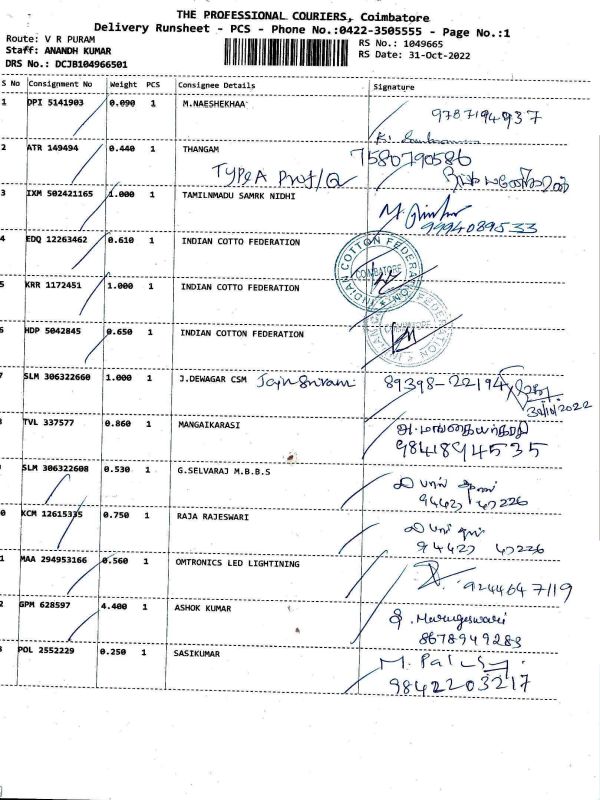 THE PROFESSIONAL COURIERS, Coimbatore
Delivery Runsheet - PCS - Phone No.:0422-3505555 - Page No.:1
Route: V R PURAM
Staff: ANANDH KUMAR
DRS No.: DCJB104966501
RS No.: 1049665
RS Date: 31-Oct-2022
S No Consignment No Weight PCS Consignee Details Signature
1 DPI 5141903 0.090 1 M.NAESHEKHAA 9787194937
2 ATR 149494 0.440 1 THANGAM 7580790586
TYPEA
3 IXM 502421165 1.000 1 TAMILNMADU SAMRK NIDHI 9994089533
4 EDQ 12263462 0.610 1 INDIAN COTTO FEDERATION
INDIAN COTTON FEDERATION
COIMBATORE
5 KRR 1172451 1.000 1 INDIAN COTTO FEDERATION
6 HDP 5042845 0.650 1 INDIAN COTTON FEDERATION
7 SLM 306322660 1.000 1 J.DEWAGAR CSM 89398-22194
TVL 337577 0.860 1 MANGAIKARASI அ.மங்கையர்கரசி
9841894535
SLM 306322608 0.530 1 G.SELVARAJ M.B.B.S
94423 47226
0 KCM 12615335 0.750 1 RAJA RAJESWARI
94423 47226
1 MAA 294953166 0.560 1 OMTRONICS LED LIGHTINING 9244647119
2 GPM 628597 4.400 1 ASHOK KUMAR Murugeswari
8678949283
3 POL 2552229 0.250 1 SASIKUMAR
9842203217